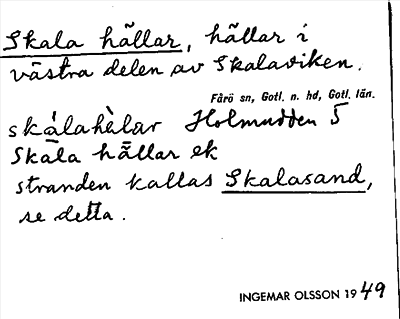 Skala hällar, hällar i
västra delen av Skalaviken.
Fårö sn, Gotl. n. hd, Gotl. län.
skálahèlar Holmudden 5
Skala hällar ek
stranden kallas Skalasand,
se detta.
INGEMAR OLSSON 1949